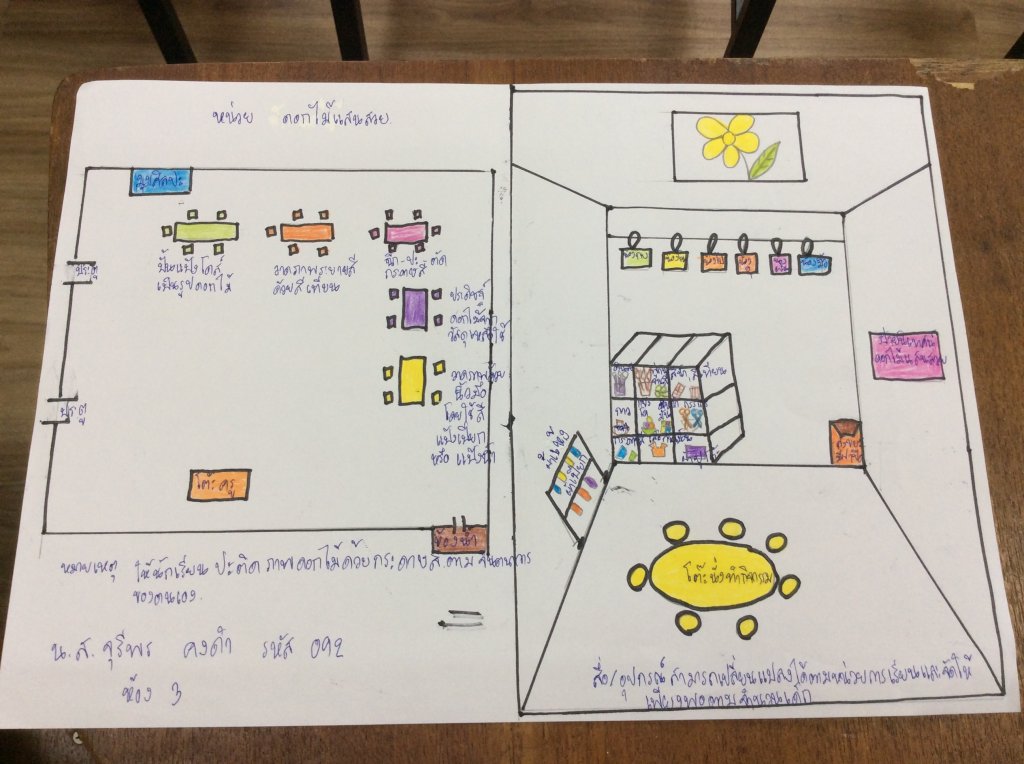 หน่วย ดอกไม้แสนสวย
มุมศิลปะ
ประตู
ปั้นแป้งโดว์
เป็นรูปดอกไม้
วาดภาพระบายสี
ด้วยสีเทียน
ฉีก-ปะ-ตัด
กระดาษสี
ประดิษฐ์
ดอกไม้จาก
วัสดุเหลือใช้
วาดภาพด้วย
นิ้วมือ
โดยใช้สี
แป้งเปียก
หรือ แป้งน้ำ
ประตู
โต๊ะครู
ห้องน้ำ
หมายเหตุ ให้นักเรียน ปะติด ภาพดอกไม้ด้วยกระดาษสี ตาม จินตนาการ
ของตนเอง.
น.ส. จุรีพร คงดำ รหัส 092
ห้อง 3
ผ้าแห้ง
ผ้าเปียก
โต๊ะนั่งทำกิจกรรม
สื่อ/อุปกรณ์ สามารถเปลี่ยนแปลงได้ตามหน่วยการเรียนและจัดให้
เพียงพอตามจำนวนเด็ก